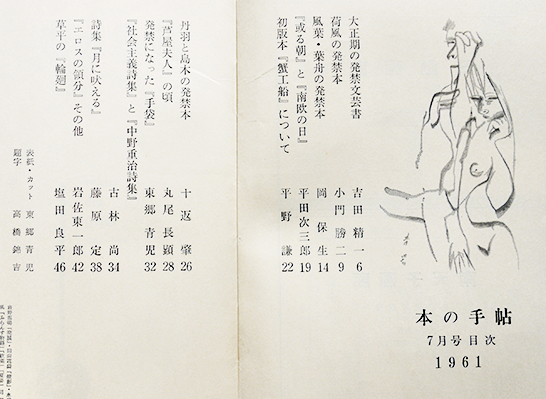 本の手帖
7月号目次
1961
大正期の発禁文芸書 吉田精一 6
荷風の発禁本 小門勝二 9
風葉・葉舟の発禁本 岡保生 14
『或る朝』と『南欧の日』 平田次三郎 19
初版本『蟹工船』について 平野謙 22
丹羽と島木の発禁本 十返肇 26
『芦屋夫人』の頃 丸尾長顕 28
発禁になった『手袋』 東郷青児 32
『社会主義詩集』と『中野重治詩集』 古林尚 34
詩集『月に吠える』 藤原定 38
『エロスの領分』その他 岩佐東一郎 42
草平の『輪廻』 塩田良平 46
表紙・カット 東郷青児
題字 高橋錦吉